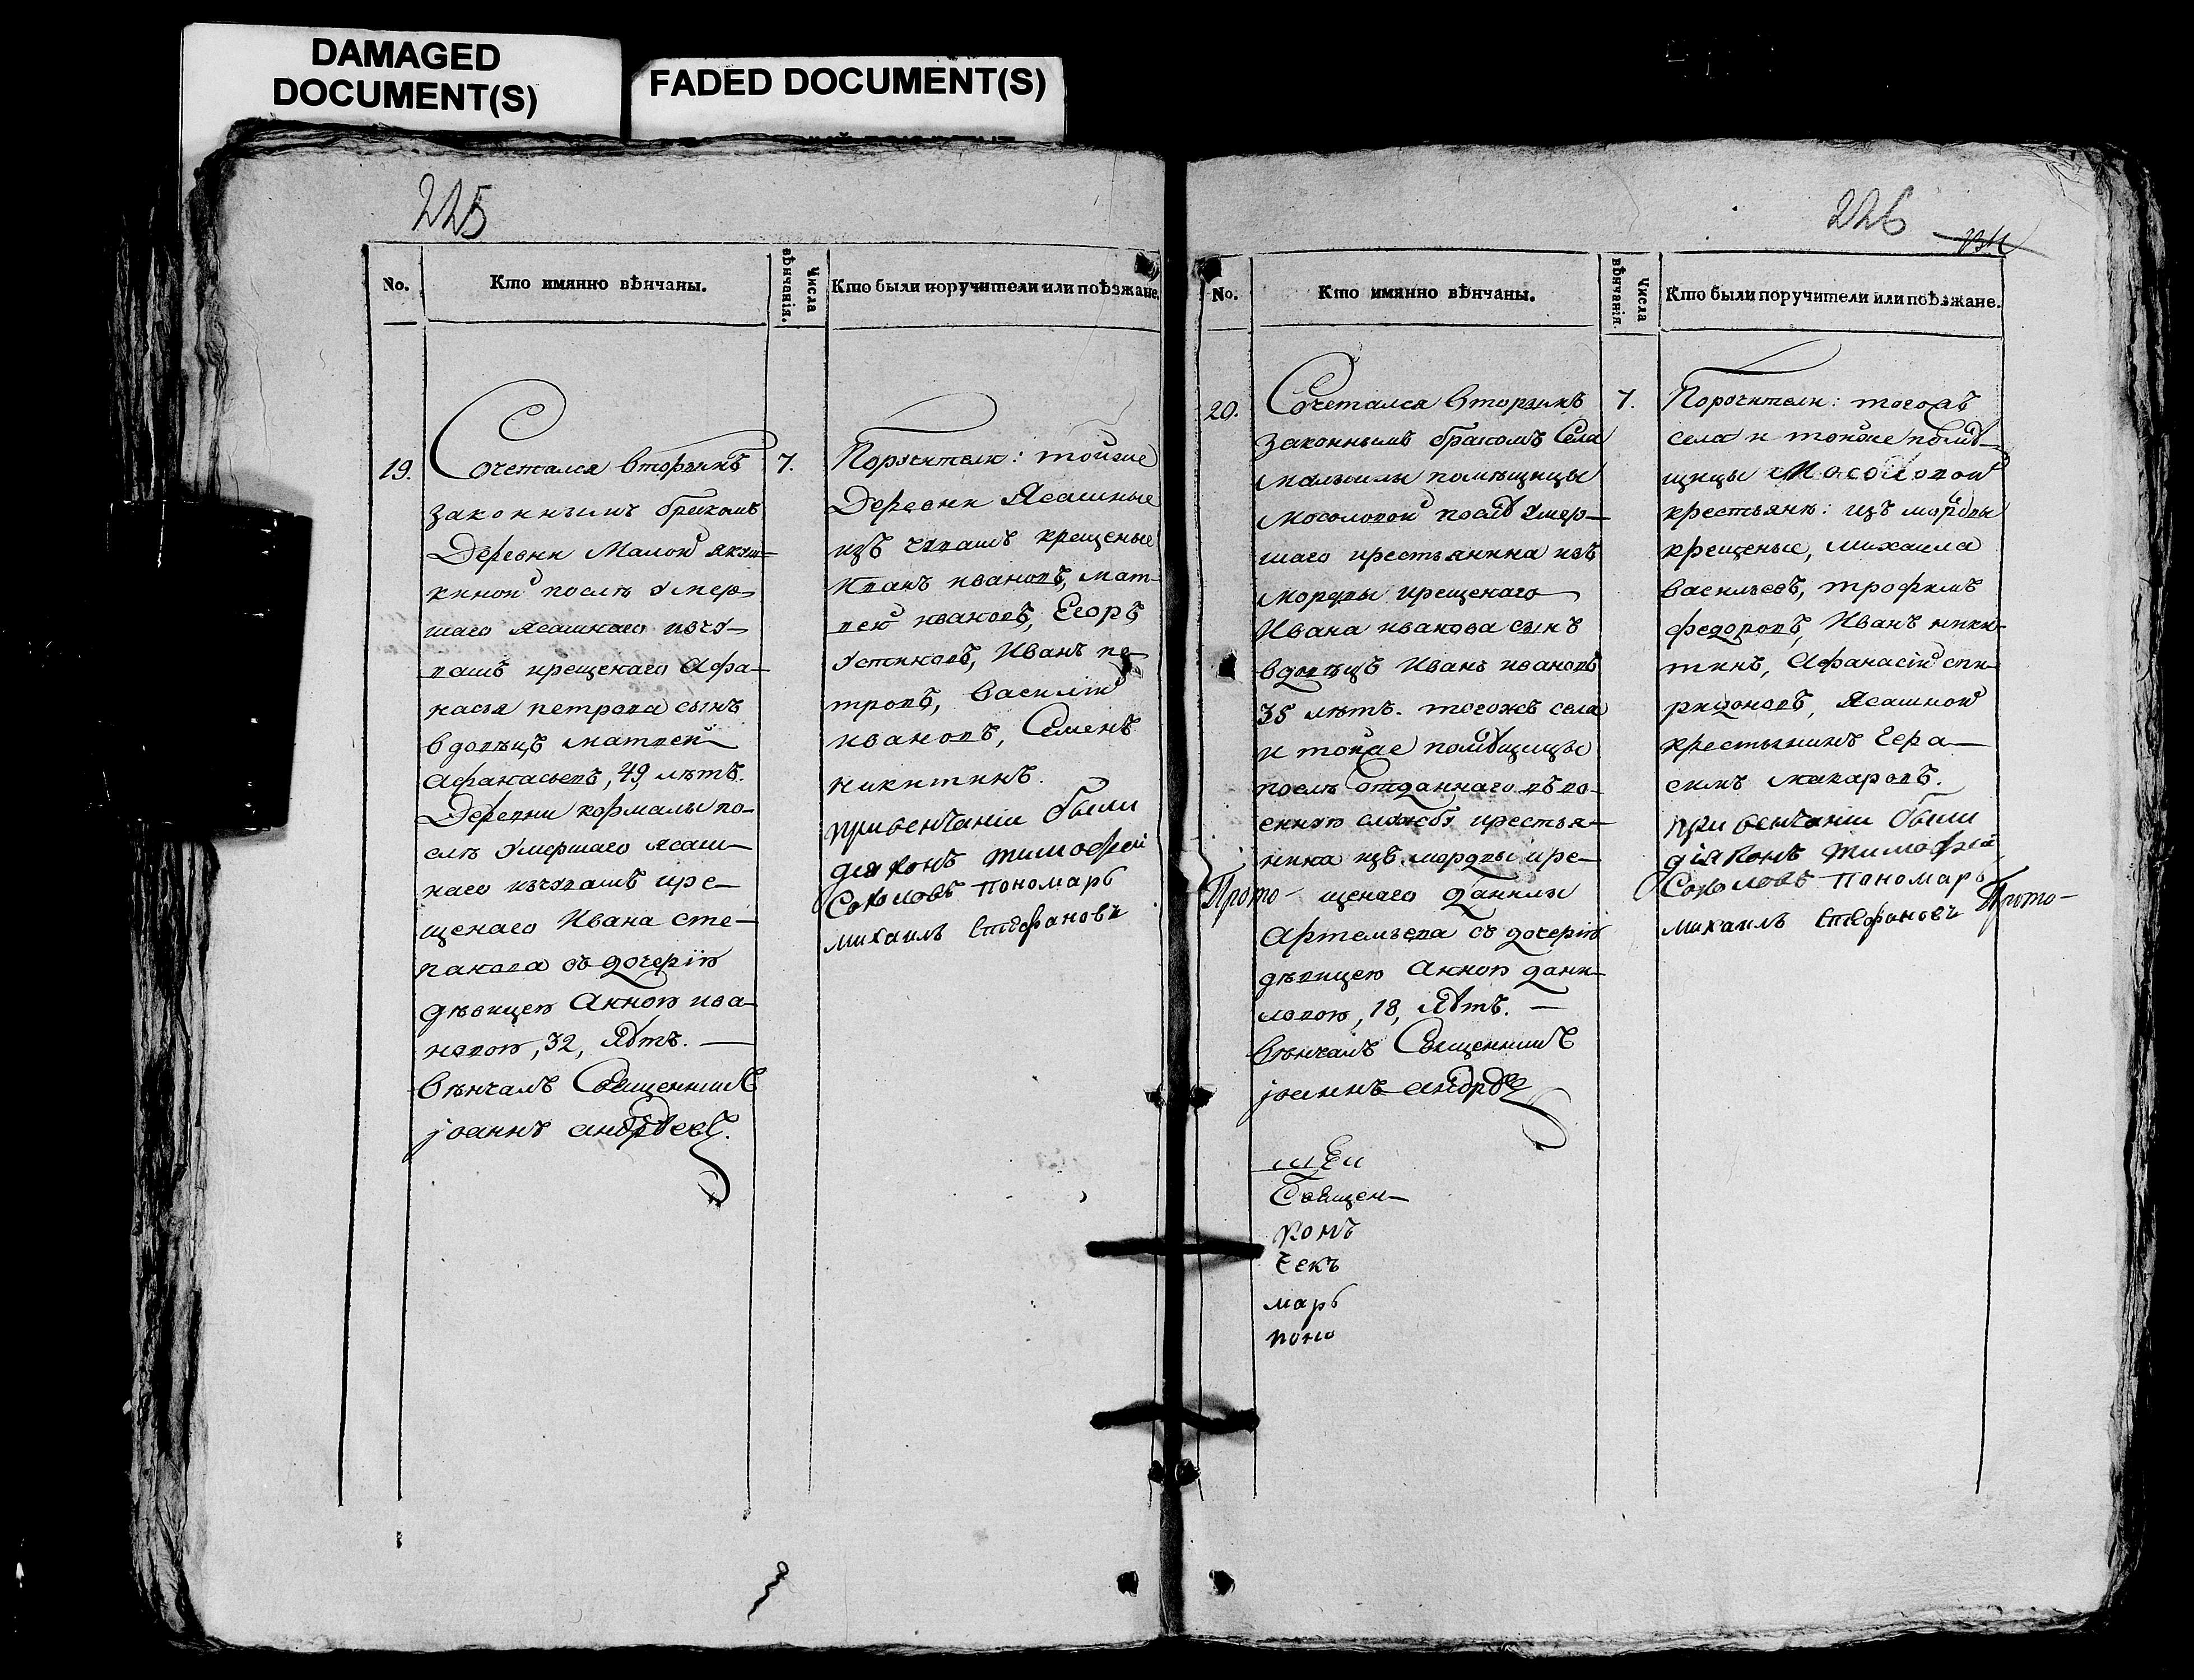 DAMAGED
DOCUMENT(S)
FADED DOCUMENT(S)
225
No.
Кто имянно вѣнчаны.
Числа
вѣнчанія.
Кто были поручители или поѣзжане.
19.
Сочетался вторымъ
законнымъ бракомъ
Деревни Малой якуш-
киной послѣ умер-
шаго ясашнаго изчу-
вашъ крещенаго Афа-
насья петрова сынъ
вдовецъ матвей
Афанасьевъ, 49, лѣтъ.
Деревни кормалы по-
слѣ умершаго ясаш-
наго изчувашъ кре-
щенаго Ивана сте-
панова съ дочерію
дѣвицею Анною ива-
новою, 32, лѣтъ. —
Вѣнчалъ Священникъ
іоаннъ андреевъ.
7.
Поручители: тойже
Деревни Ясашные
изъ чувашъ крещеные
Иванъ ивановъ, мат-
вей ивановъ, Егоръ
устиновъ, Иванъ пе-
тровъ, василій
ивановъ, Семенъ
никитинъ.
при венчаніи были
діяконъ тимофей
Соколовъ пономарь
михаилъ Стефановъ
226
No.
Кто имянно вѣнчаны.
Числа
вѣнчанія.
Кто были поручители или поѣзжане.
20.
Сочетался вторымъ
законнымъ бракомъ Села
помѣщицы
мосоловой послѣ умер-
шаго крестьянина изъ
мордвы крещенаго
Ивана иванова сынъ
вдовецъ Иванъ ивановъ
35 лѣтъ. тогожъ села
и тойже помѣщицы
послѣ отданнаго въ во-
енную службу крестья-
нина изъ мордвы кре-
Прото- щенаго данилы
Артемьева съ дочерію
дѣвицею Анною дани-
ловою, 18, лѣтъ. —
Вѣнчалъ Священникъ
іоаннъ андрѣев
Священ-
комъ
чекъ
марь
поно
7.
Поручители: тогожъ
села и тойже помѣ-
щицы Мосоловой
крестьяне: изъ мордвы
крещеные, михаила
васильевъ, трофимъ
федоровъ, Иванъ ники-
тинъ, Афанасій спи-
ридоновъ, Ясашной
крестьянинъ Гера-
симъ макаровъ.
при венчаніи были
діяконъ тимофей
Соколовъ пономарь
михаилъ Стефановъ Прото-